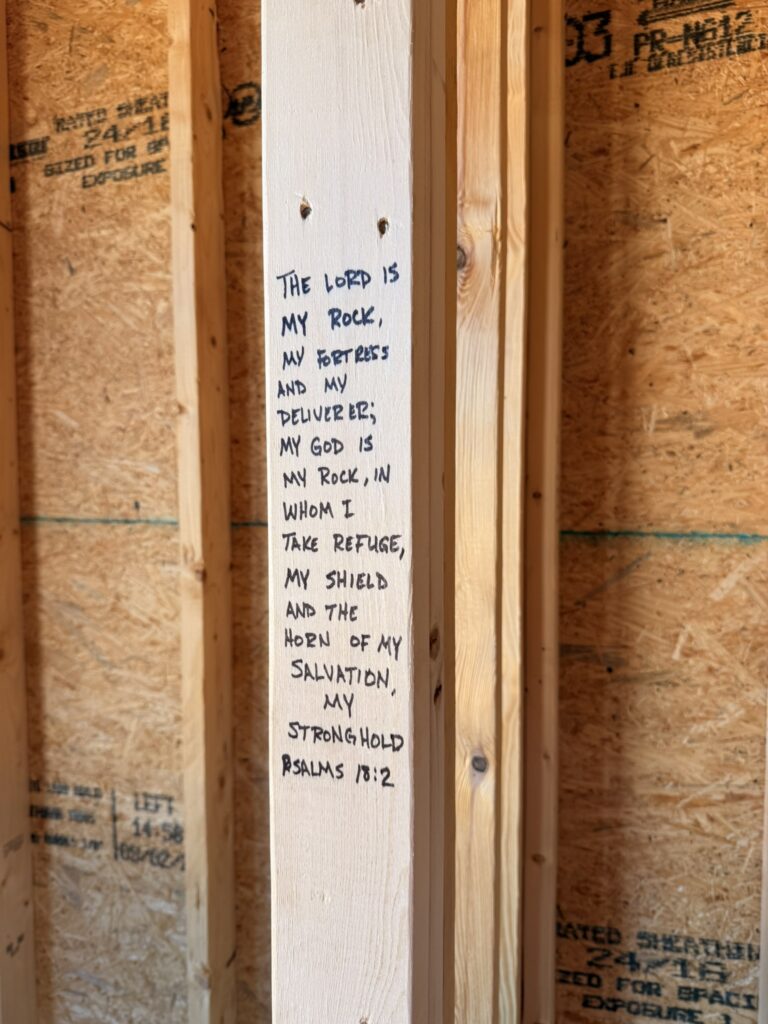 THE LORD IS
MY ROCK,
MY FORTRESS
AND MY
DELIVERER;
MY GOD IS
MY ROCK, IN
WHOM I
TAKE REFUGE,
MY SHIELD
AND THE
HORN OF MY
SALVATION,
MY
STRONGHOLD
PSALMS 18:2
RATED SHEAT
24/16
SIZED FOR SPA
EXPOSURE
03
PR-N612
LEFT
14:58
RATED SHEATHIN
24/16
ZED FOR SPACI
EXPOSURE 1